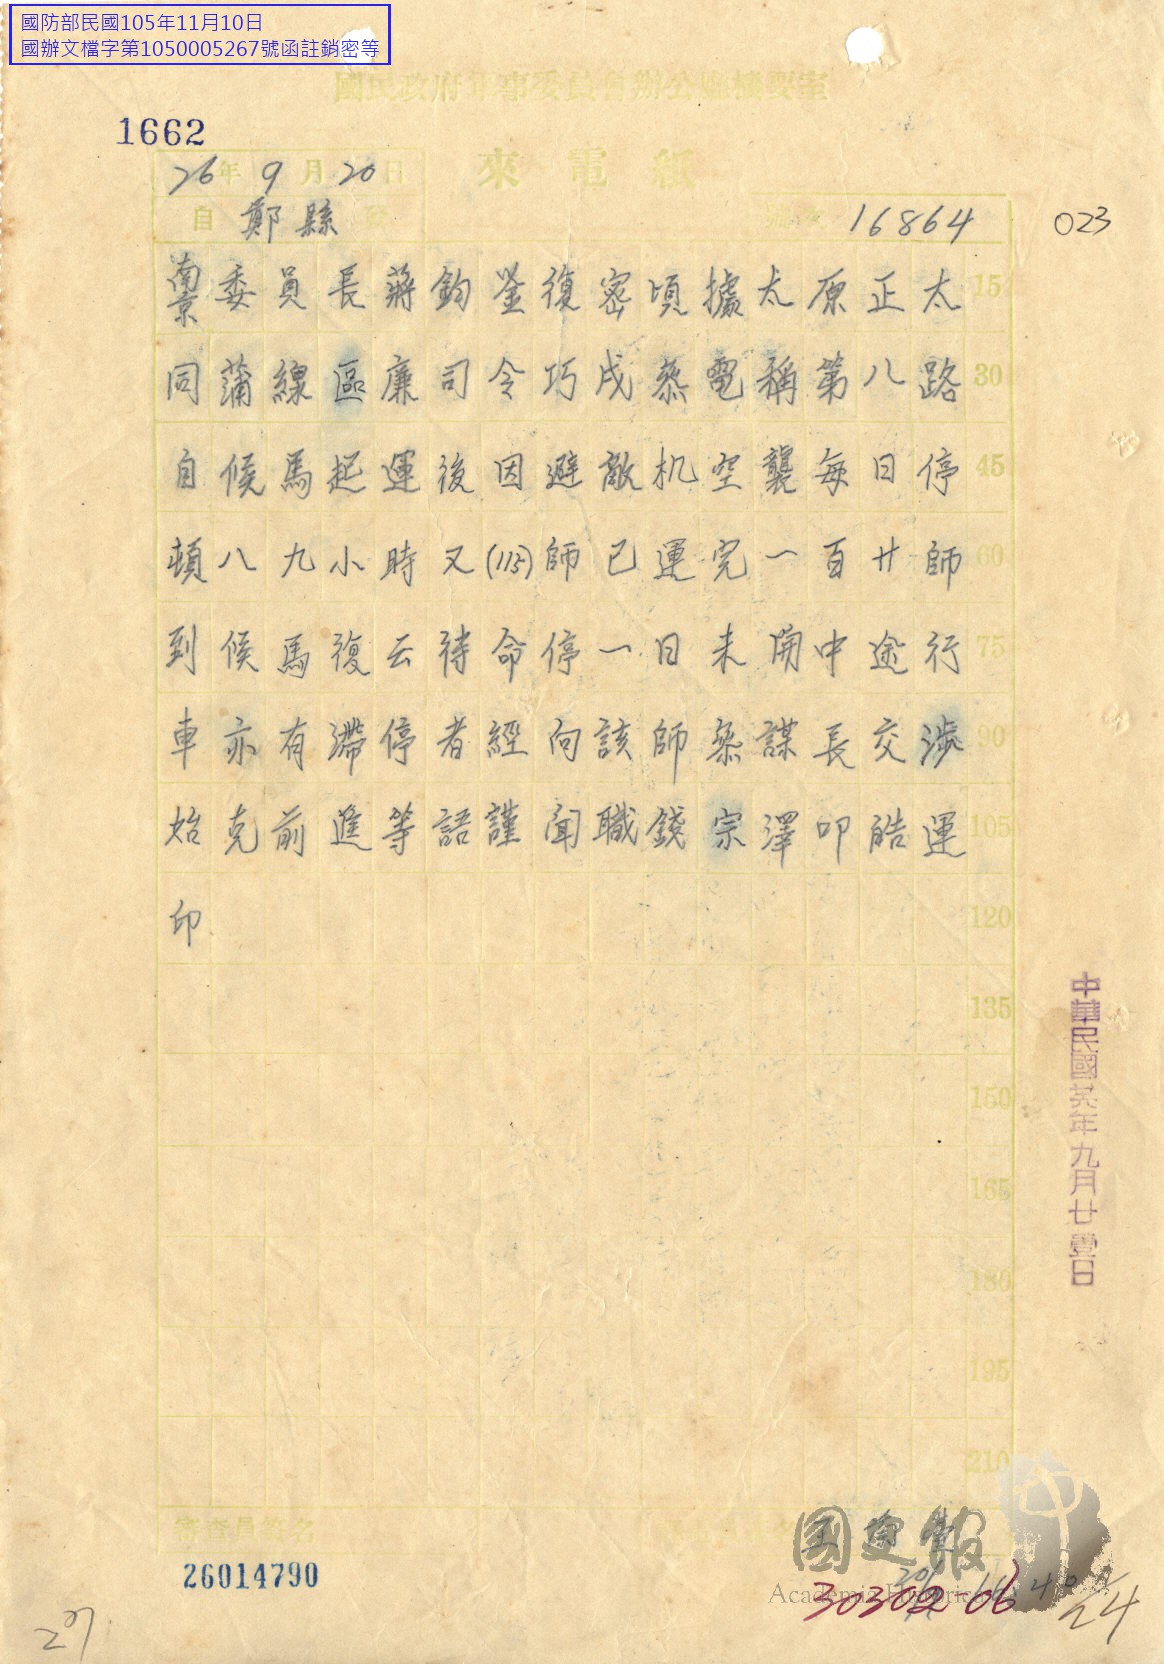 國防部民國105年11月10日
國辦文檔字第1050005267號函註銷密等
國民政府軍事委員會辦公廳機要室
1662
來電紙
26年9月20日
自鄭縣發
16864
023
南京委員長蔣鈞鉴復密頃據太原正太 15
同蒲線區廉司令巧戌叅電稱第八路 30
自候馬起運後因避敵机空襲每日停 45
頓八九小時又(115)師已運完一百廿師 60
到候馬復云待命停一日未開中途行 75
車亦有滯停者經向該師叅謀長交涉 90
始克前進等語謹聞職錢宗澤叩皓運 105
印 120
135
150
165
180
195
210
中華民國廿六年九月廿壹日
審查員簽名
國史館
Academia Historica
26014790
30302-06
24
27